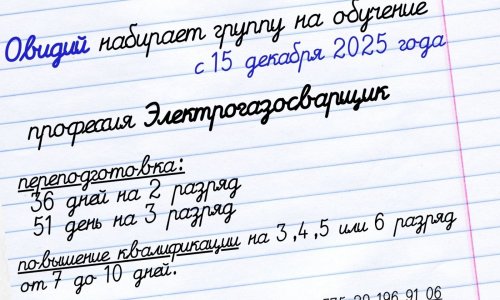 Овидий набирает группу на обучение
с 15 декабря 2025 года
профессия Электрогазосварщик
переподготовка:
36 дней на 2 разряд
51 день на 3 разряд
повышение квалификации на 3,4,5 или 6 разряд
от 7 до 10 дней.
196 91 06